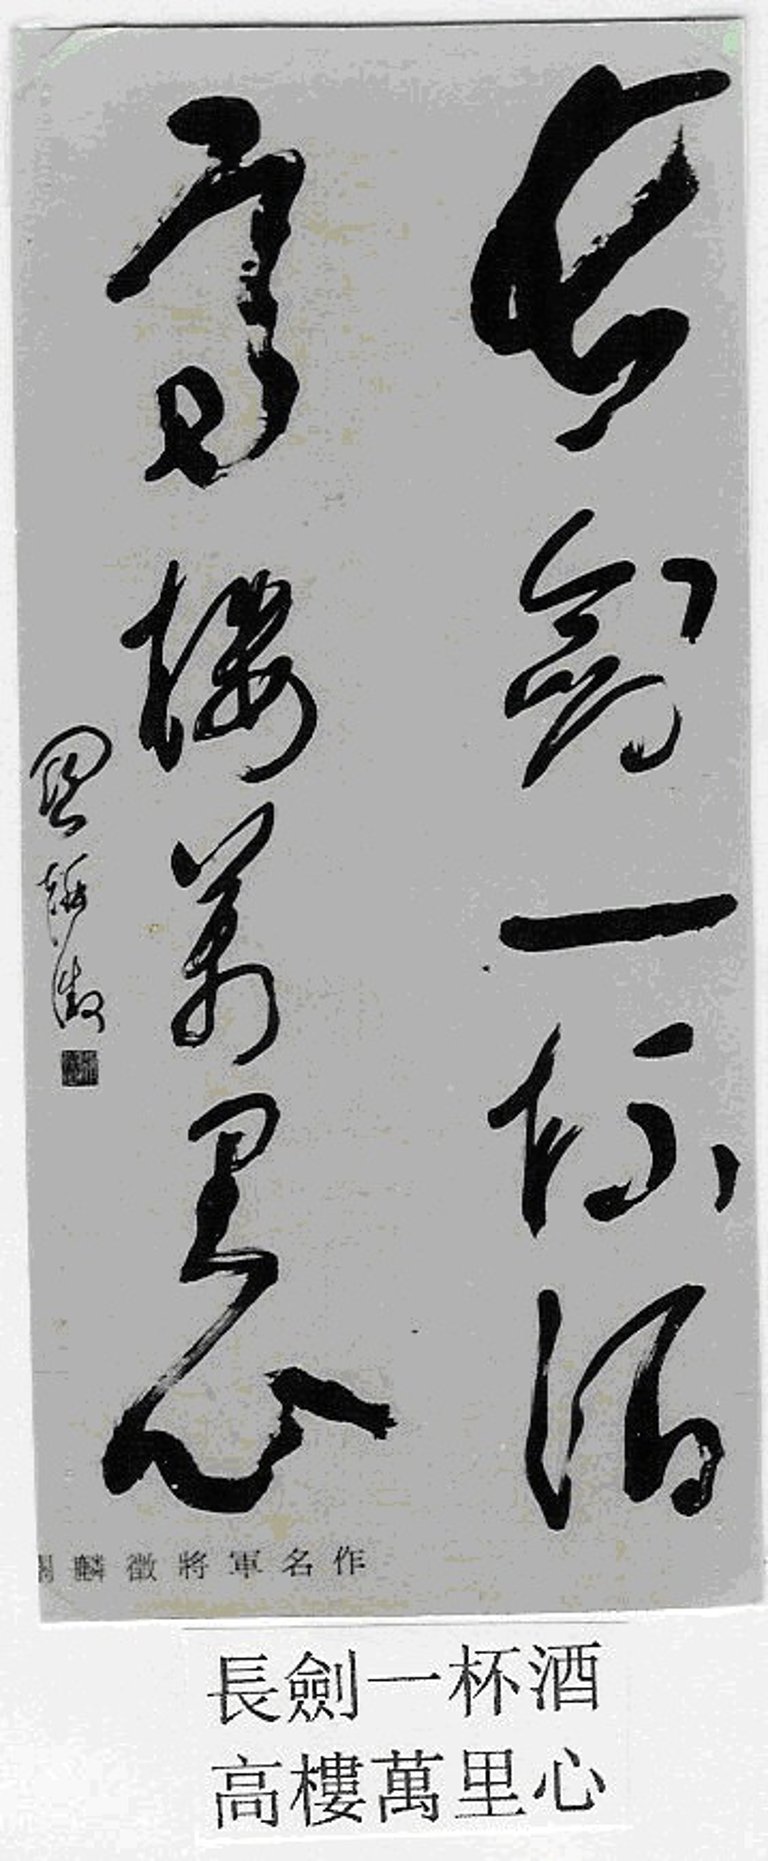 長劍一杯酒
高樓萬里心
關麟徵
關麟徵將軍名作
長劍一杯酒
高樓萬里心